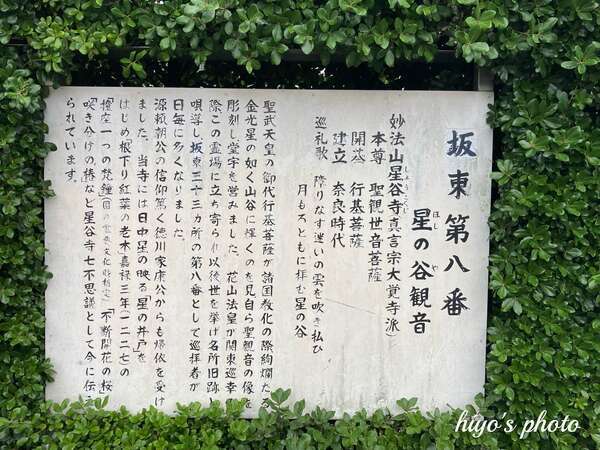 坂東第八番
星の谷観音
ほし や
妙法山星谷寺(真言宗大覚寺派)
しょうこくじ
本尊 聖観世音菩薩
開基 行基菩薩
建立 奈良時代
巡礼歌 障りなす迷いの雲を吹き払ひ
月もろともに拝む星の谷
聖武天皇の御代行基菩薩が諸国教化の際絢爛たる
金光星の如く山谷に輝くのを見自ら聖観音の像を
彫刻し堂宇を営みました。花山法皇が関東巡幸
際この霊場に立ち寄られ以後世を挙げ名所旧跡と
唄導し、坂東三十三カ所の第八番として巡拝者が
日毎に多くなりました。
源頼朝公の信仰篤く徳川家康公からも帰依を受け
ました。当寺には日中星の映る「星の井戸」を
はじめ根下り紅葉の老木嘉禄三年(一二二七)の
撞座一つの梵鐘(国の重要文化財指定)「不断開花の桜
咲き分けの椿など星谷寺七不思議として今に伝え
られています。
hiyo's photo